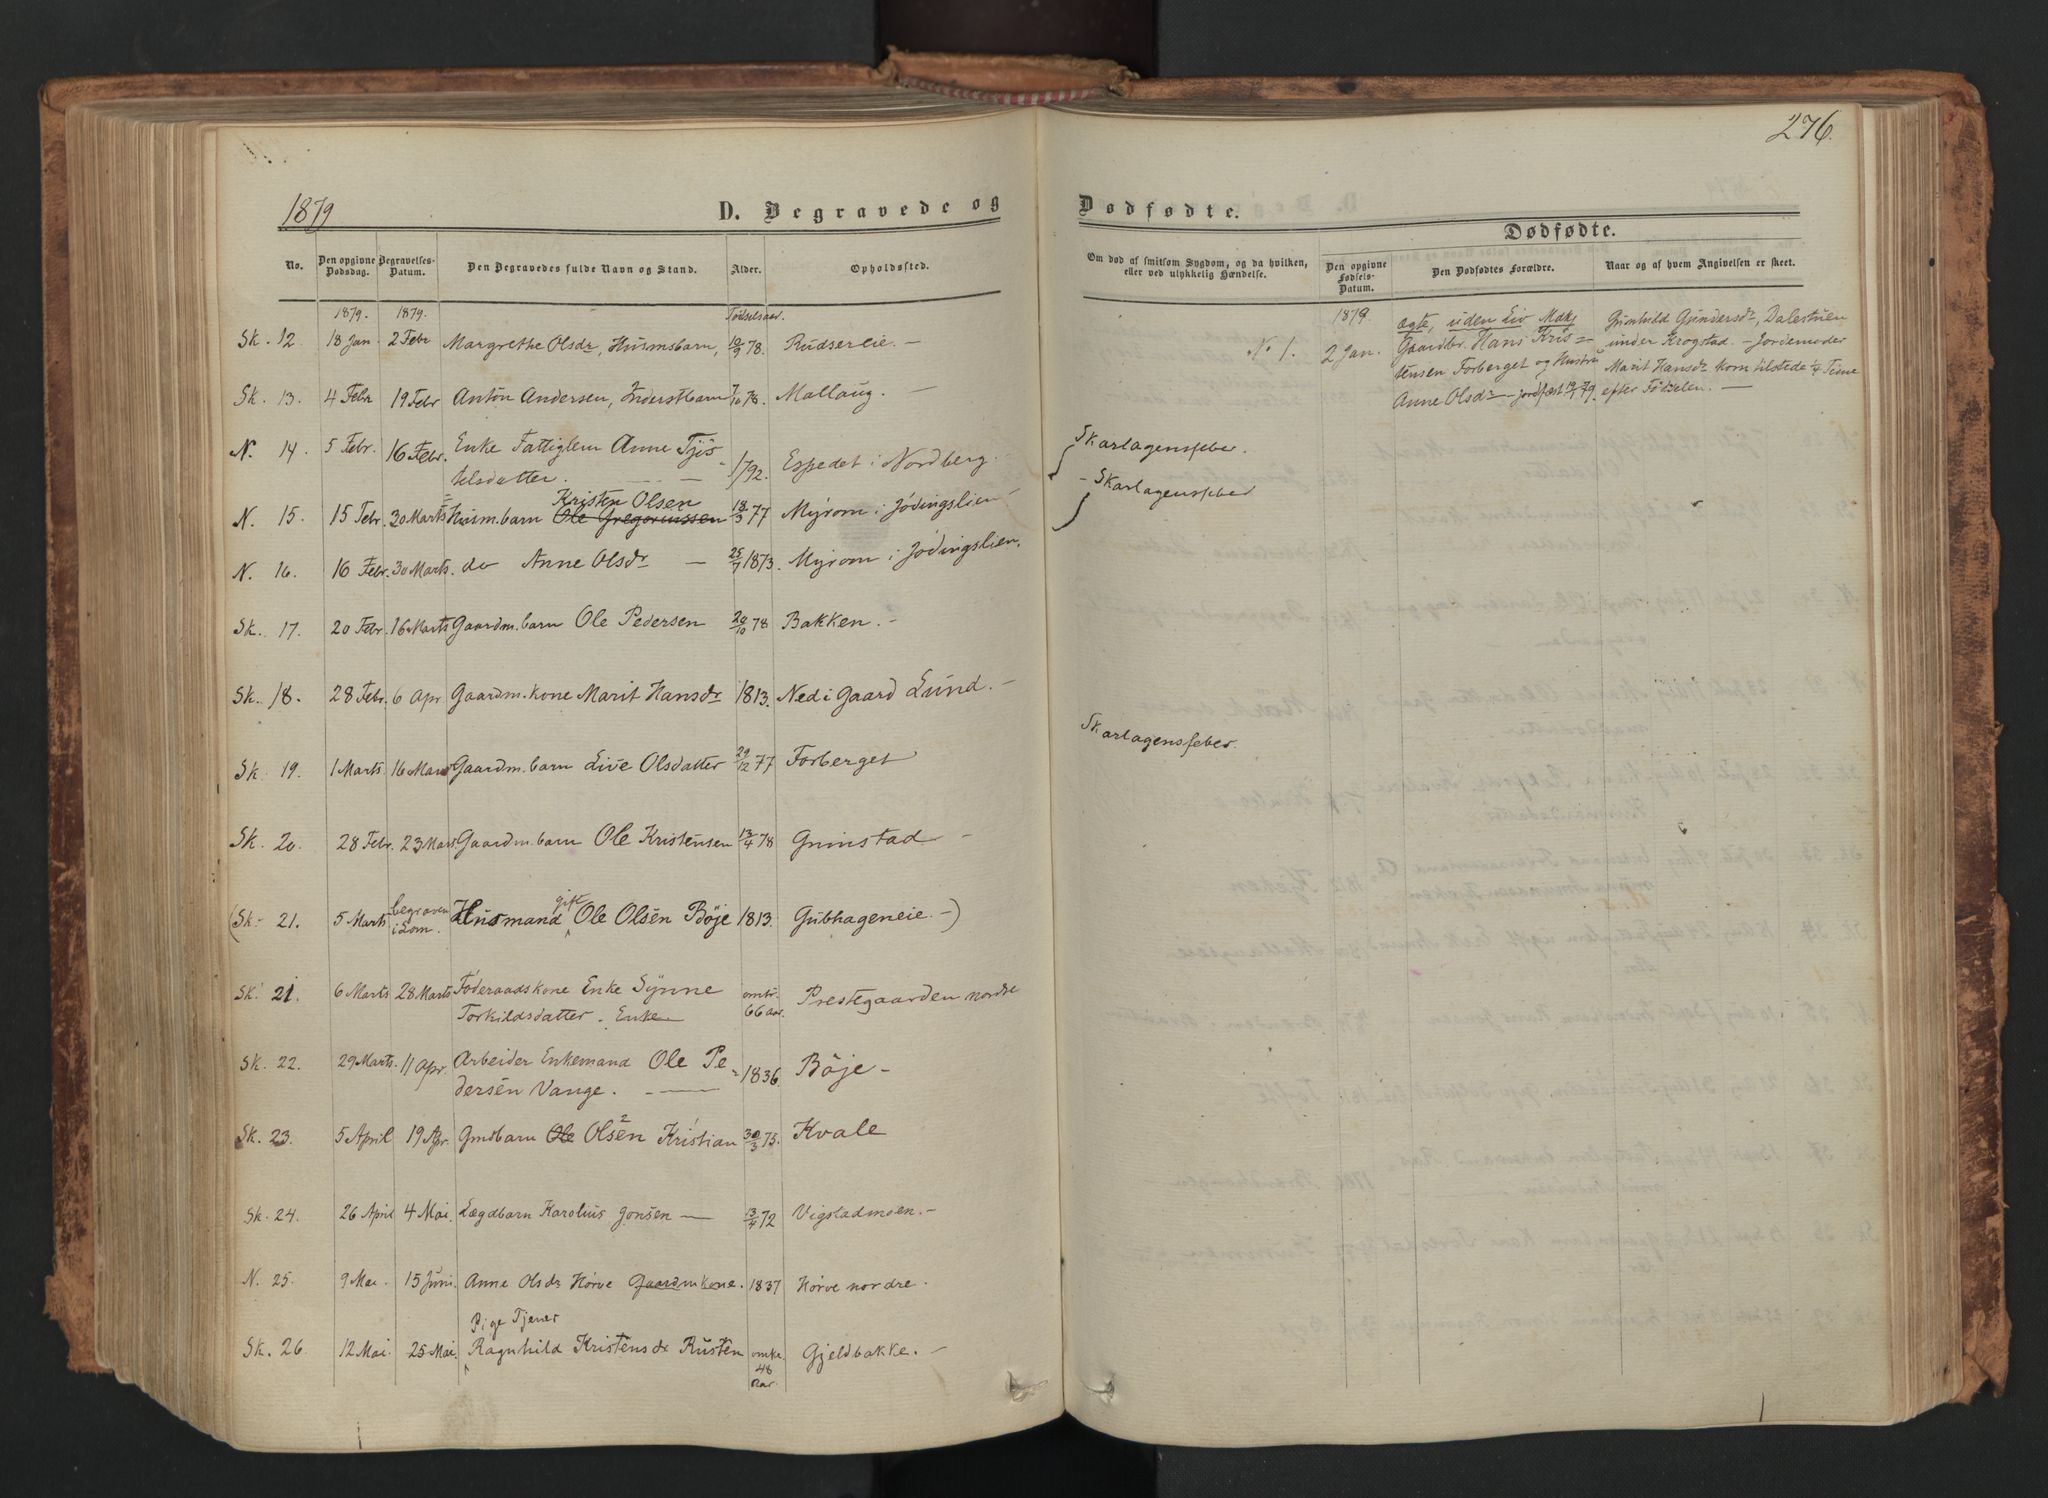 276.
1879
D. Begravede og
Dødfødte.
Dødfødte.
No. Den opgivne Dødsdag. Begravelses-Datum. Den Begravedes fulde Navn og Stand. Alder. Opholdssted.
Om død af smitsom Sygdom, og da hvilken, eller ved ulykkelig Hændelse. Den opgivne Fødsels-Datum. Den Dødfødtes Forældre. Naar og af hvem Angivelsen er skeet.
1879. 1879. Fødselsaar.
Sk. 12. 18 Jan 2 Febr Margrethe Olsdr, Husmsbarn, 10/9 78. Rudsereie. —
Sk. 13. 4 Febr 19 Febr Anton Andersen, Inderstbarn 7/10 78. Mallaug. —
N. 14. 5 Febr. 16 Febr. Enke Fattiglem Anne Tjøs=
telsdatter. — 1792. Espedet i Nordberg. —
Kristen Olsen
N. 15. 15 Febr. 30 Marts Husm.barn Ole Gregoriussen 18/3 77 Myrom i Jødingslien —
N. 16. 16 Febr. 30 Marts. do Anne Olsdr — 25/7 1873. Myrom i Jødingslien.
Sk. 17. 20 Febr. 16 Marts Gaardm.barn Ole Pedersen 20/10 78 Bakken. —
Sk. 18. 28 Febr. 6 Apr Gaardm.kone Marit Hansdr 1813. Nedi Gaard Lund. —
Sk. 19. 1 Marts 16 Mars Gaardm.barn Live Olsdatter 29/12 77 Forberget
Sk. 20. 28 Febr. 23 Mars Gaardm.barn Ole Kristensen 13/4 78 Grimstad —
(Sk. 21. 5 Marts begraven i Lom. Husmand gift Ole Olsen Bøje 1813. Gubhageneie. —)
Sk. 21. 6 Marts 28 Marts Føderaadskone Enke Synne
Torkildsdatter. Enke omtr. 66 aar. Prestegaarden nordre
Sk. 22. 29 Marts. 11 Apr. Arbeider Enkemand Ole Pe=
dersen Vange. — 1836. Bøje —
Sk. 23. 5 April 19 Apr. Gmdbarn Ole Olsen 2 Kristian 30/3 75. Kvale
Sk. 24. 26 April 4 Mai. Lægdbarn Karolius Jonsen — 13/4 72 Vigstadmoen. —
N. 25. 9 Mai. 15 Juni. Anne Olsdr Hørve Gaardmkone. 1837 Hørve nordre.
Pige Tjener
Sk. 26. 12 Mai. 25 Mai. Ragnhild Kristensdr Rusten omtr. 48 Aar. Gjeldbakke. —
Skarlagensfeber.
— Skarlagensfeber
Skarlagensfeber.
1879.
No 1. 2 Jan.
Ægte, uden Liv
Gaardbr. Hans Kris=
tensen Forberget og Hustru
Anne Olsdr — jordfæst
Gunhild Gundersdr, Dalestuen
under Krogstad. — Jordemoder
Marit Hansdr kom tilstede 1/4 Time
efter Fødselen. —